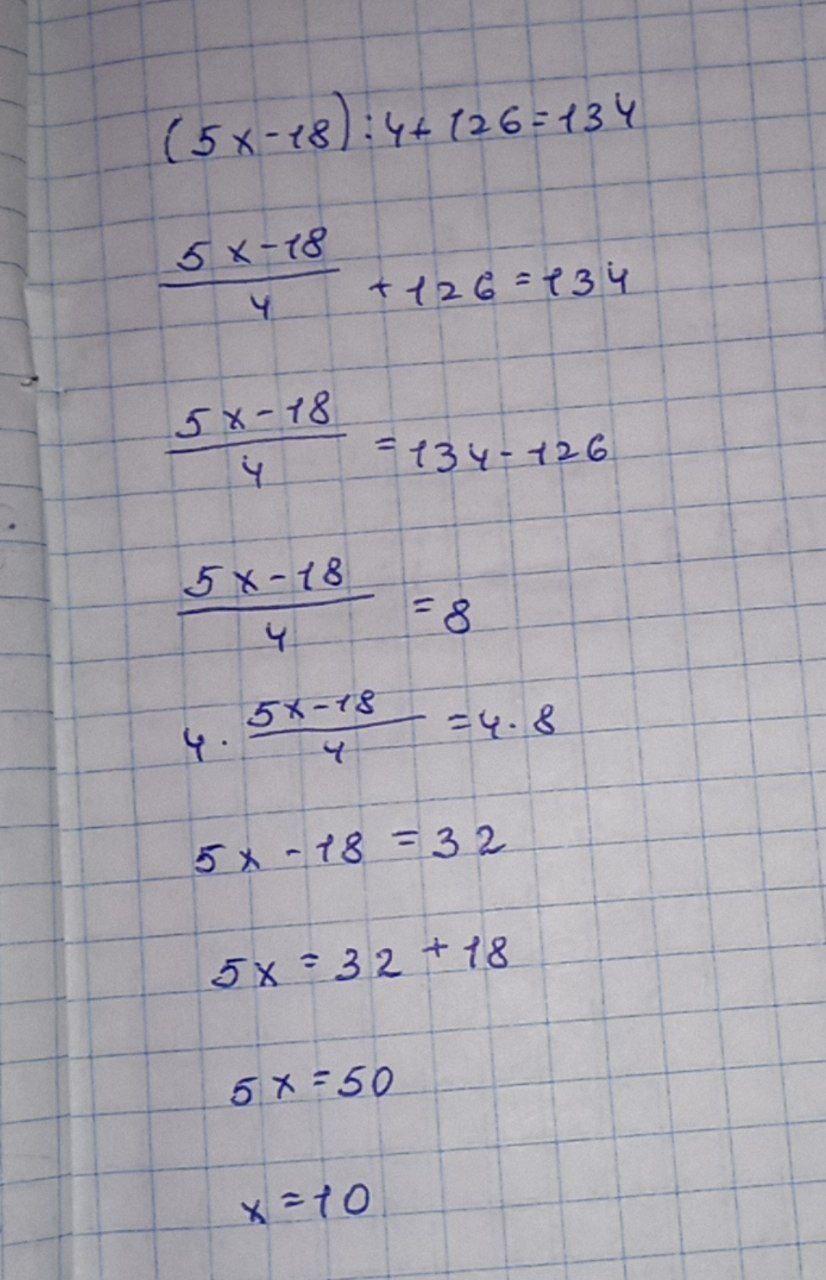 (5x-18):4+126=134
5x-18
4
+126=134
5x-18
4
=134-126
5x-18
4
=8
4·
5x-18
4
=4·8
5x-18=32
5x=32+18
5x=50
x=10